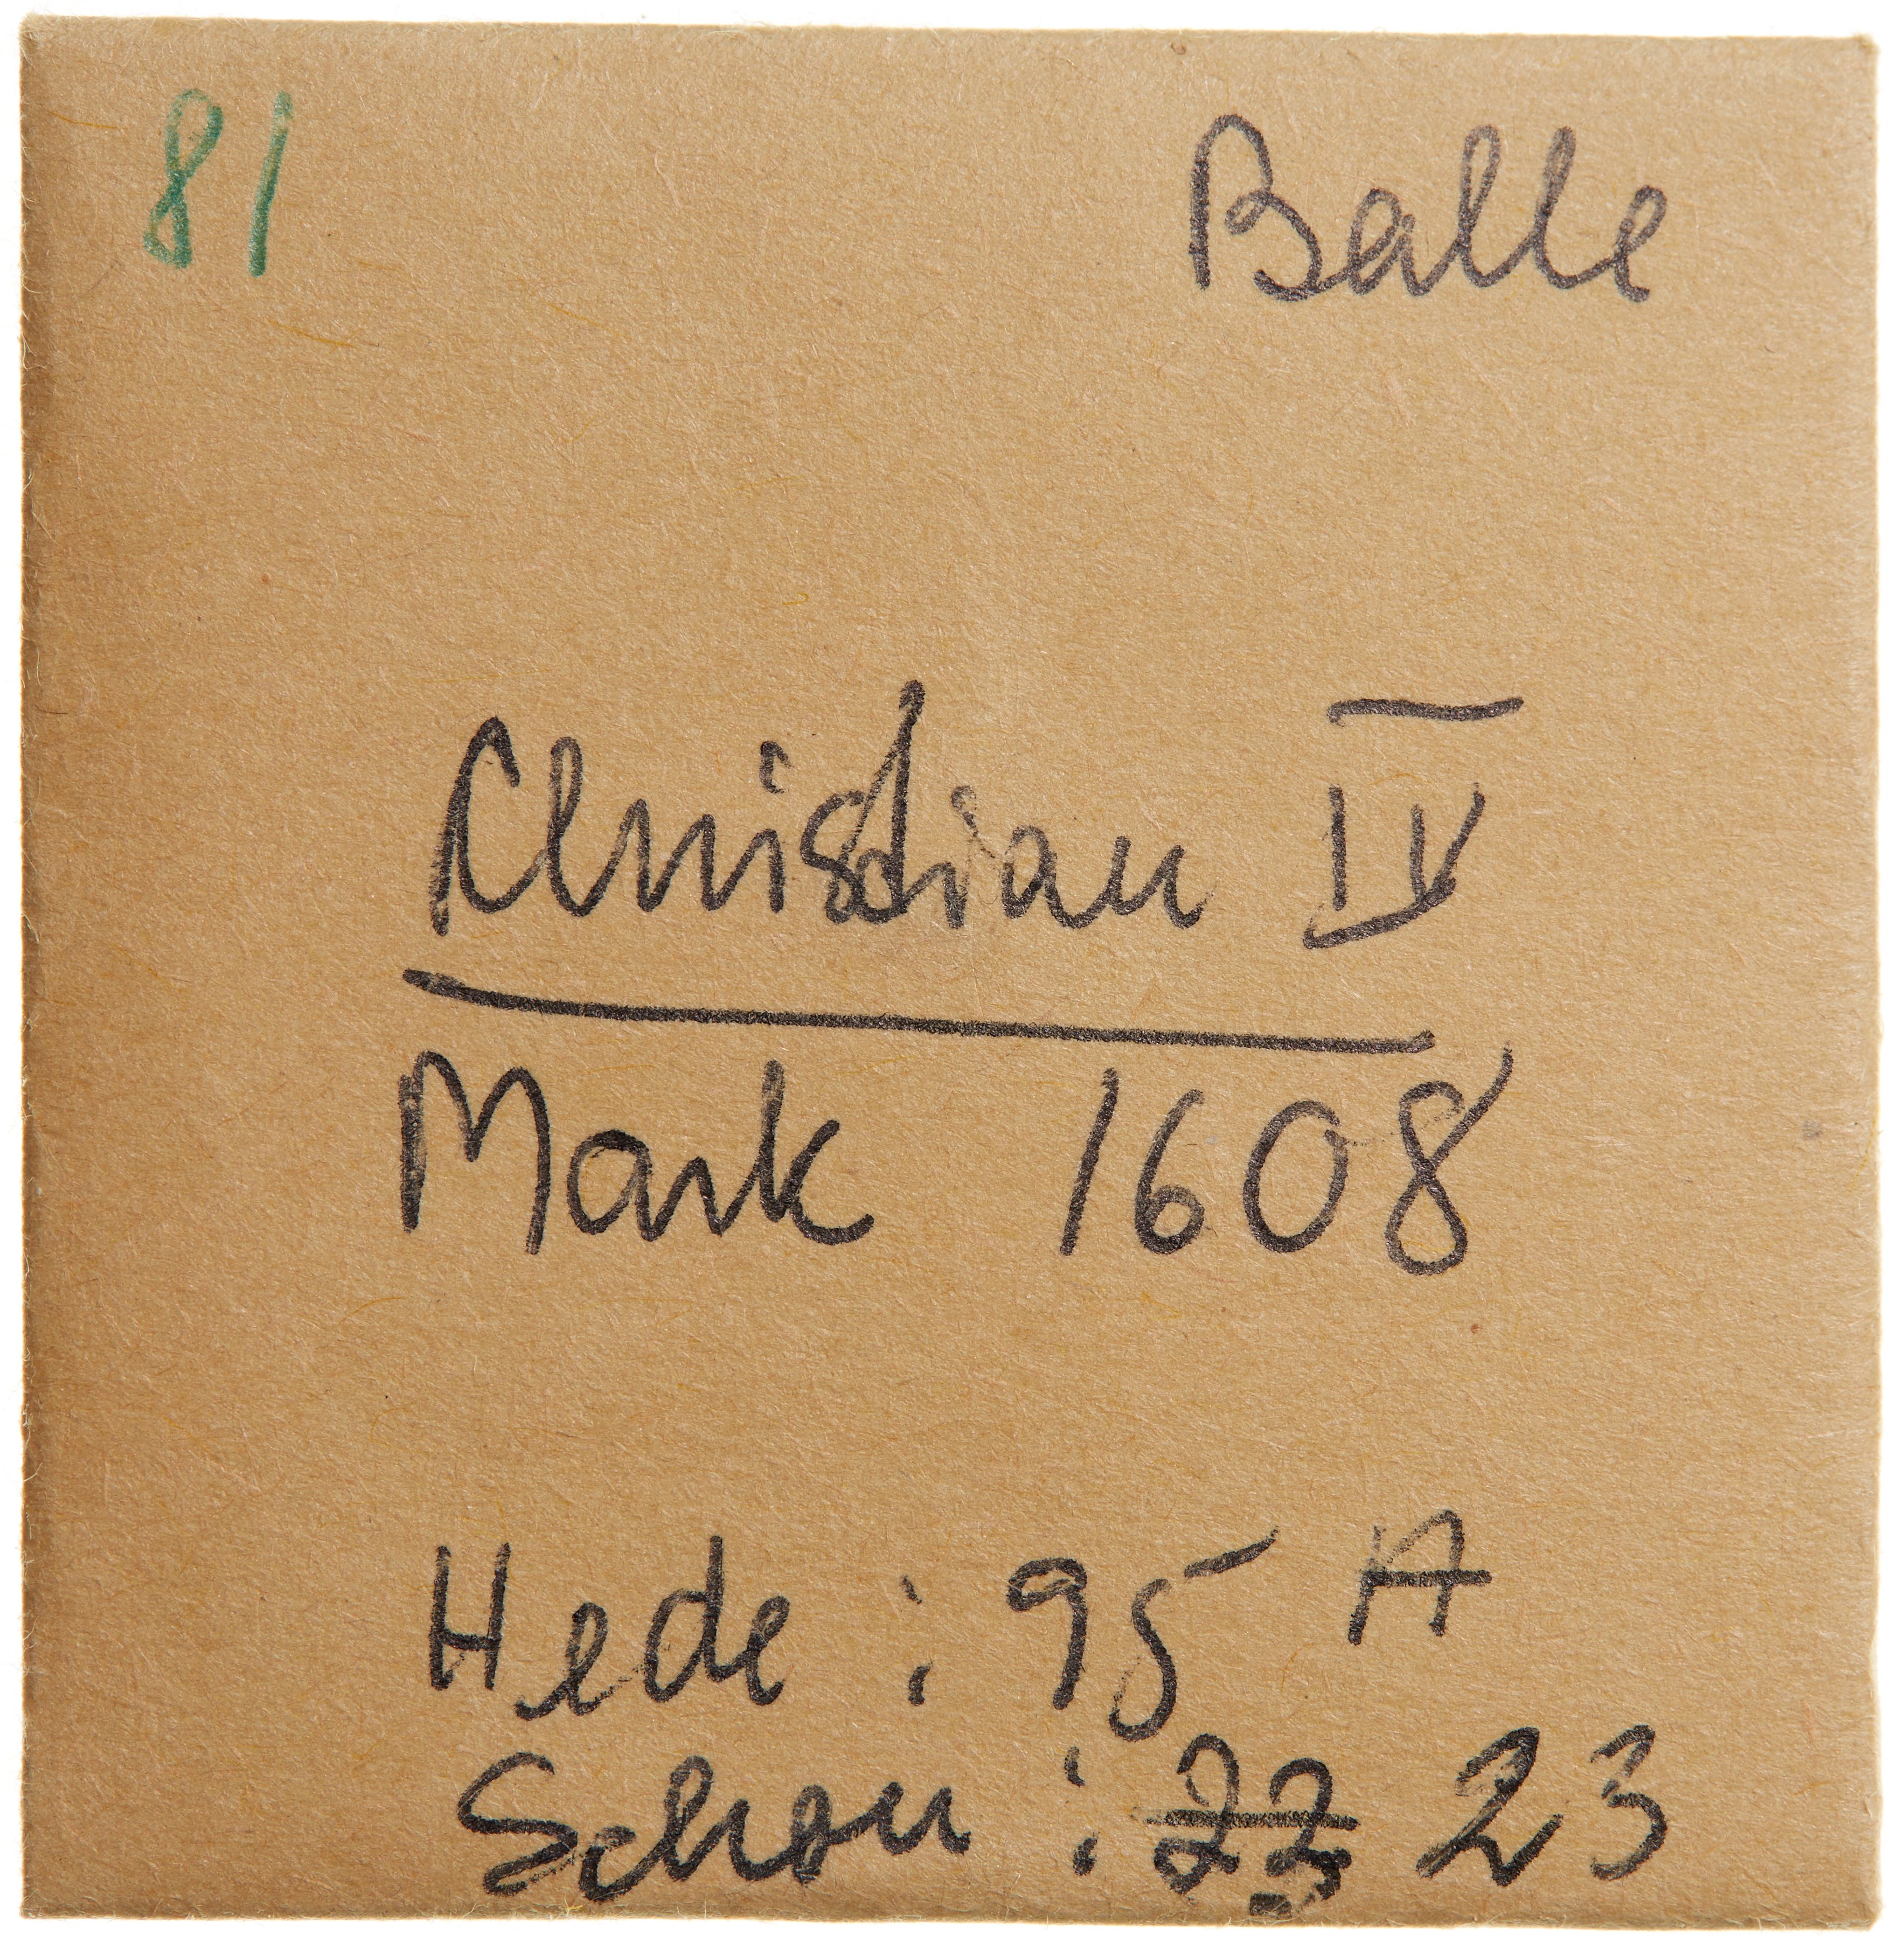 81 Balle
Christian IV
Mark 1608
Hede : 95 A
Schou : 22 23